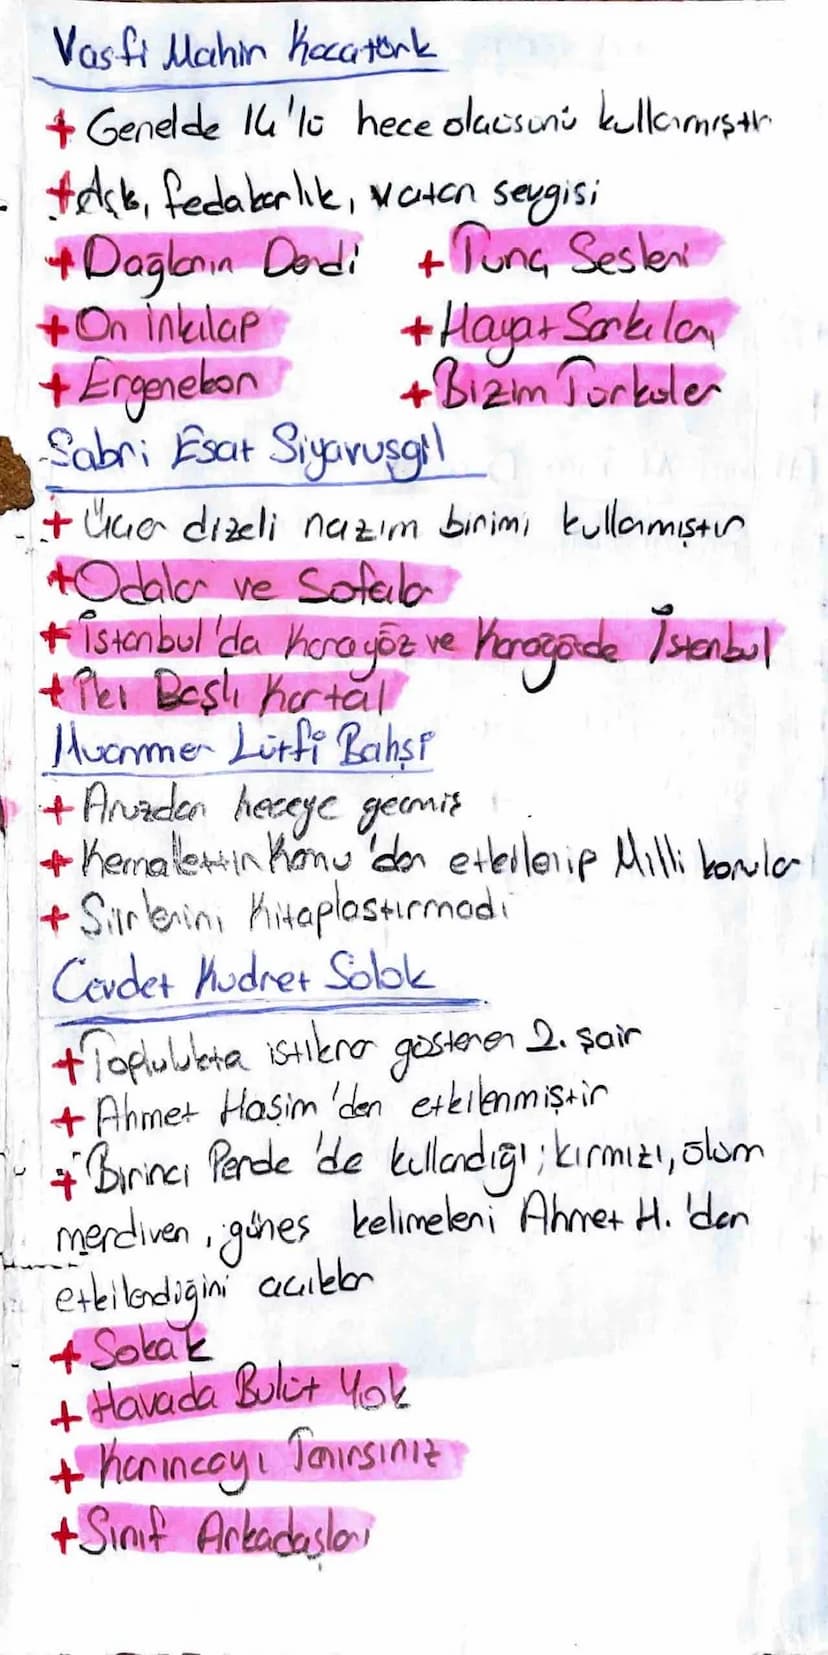 Vasfi Mahir Kocatürk
+ Genelde 14'lü hece ölçüsünü kullanmıştır
+ Aşk, fedakarlık, vatan sevgisi
+ Dağların Derdi + Tunç Sesleri
+ On İnkılap + Hayat Şarkıları
+ Ergenekon + Bizim Türküler
Sabri Esat Siyavuşgil
+ Üçer dizeli nazım birimi kullanmıştır
+ Odalar ve Sofalar
+ İstanbul'da Karagöz ve Karagözde İstanbul
+ İki Başlı Kartal
Muammer Lütfi Bahşi
+ Aruzdan heceye geçmiş
+ Kemalettin Kamu'dan etkilenip Milli konular
+ Şiirlerini Kitaplaştırmadı
Cevdet Kudret Solok
+ Toplulukta istikrar gösteren 2. şair
+ Ahmet Haşim'den etkilenmiştir
+ "Birinci Perde'de kullandığı; kırmızı, ölüm
merdiven, güneş kelimeleri Ahmet H.'den
etkilendiğini açıklar
+ Sokak
+ Havada Bulut Yok
+ Karıncayı Tanırsınız
+ Sınıf Arkadaşları